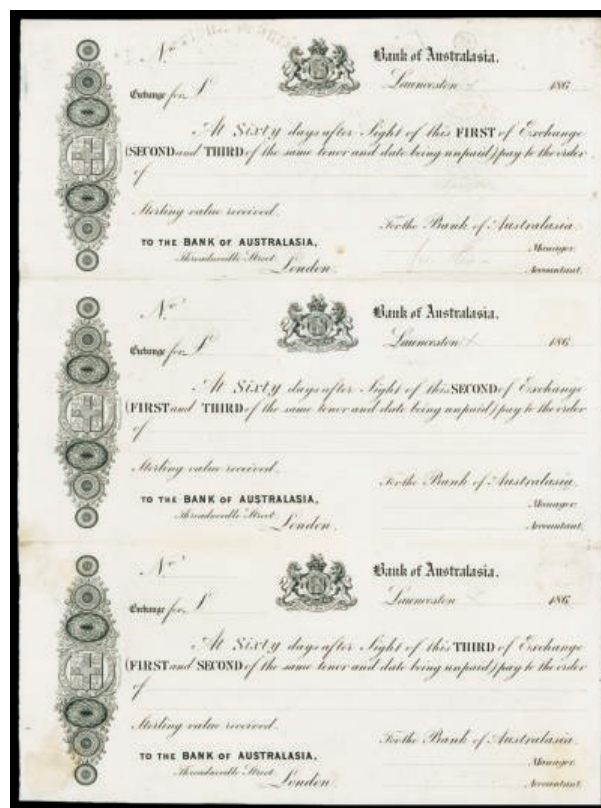 No
Bank of Australasia.
Launceston 186
Exchange for £
At Sixty days after Sight of this FIRST of Exchange
(SECOND and THIRD of the same tenor and date being unpaid) pay to the order
of
Sterling value received.
For the Bank of Australasia.
TO THE BANK OF AUSTRALASIA,
Manager.
Threadneedle Street
London.
Accountant.
No
Bank of Australasia.
Launceston 186
Exchange for £
At Sixty days after Sight of this SECOND of Exchange
(FIRST and THIRD of the same tenor and date being unpaid) pay to the order
of
Sterling value received.
For the Bank of Australasia.
TO THE BANK OF AUSTRALASIA,
Manager.
Threadneedle Street
London.
Accountant.
No
Bank of Australasia.
Launceston 186
Exchange for £
At Sixty days after Sight of this THIRD of Exchange
(FIRST and SECOND of the same tenor and date being unpaid) pay to the order
of
Sterling value received.
For the Bank of Australasia.
TO THE BANK OF AUSTRALASIA,
Manager.
Threadneedle Street
London.
Accountant.